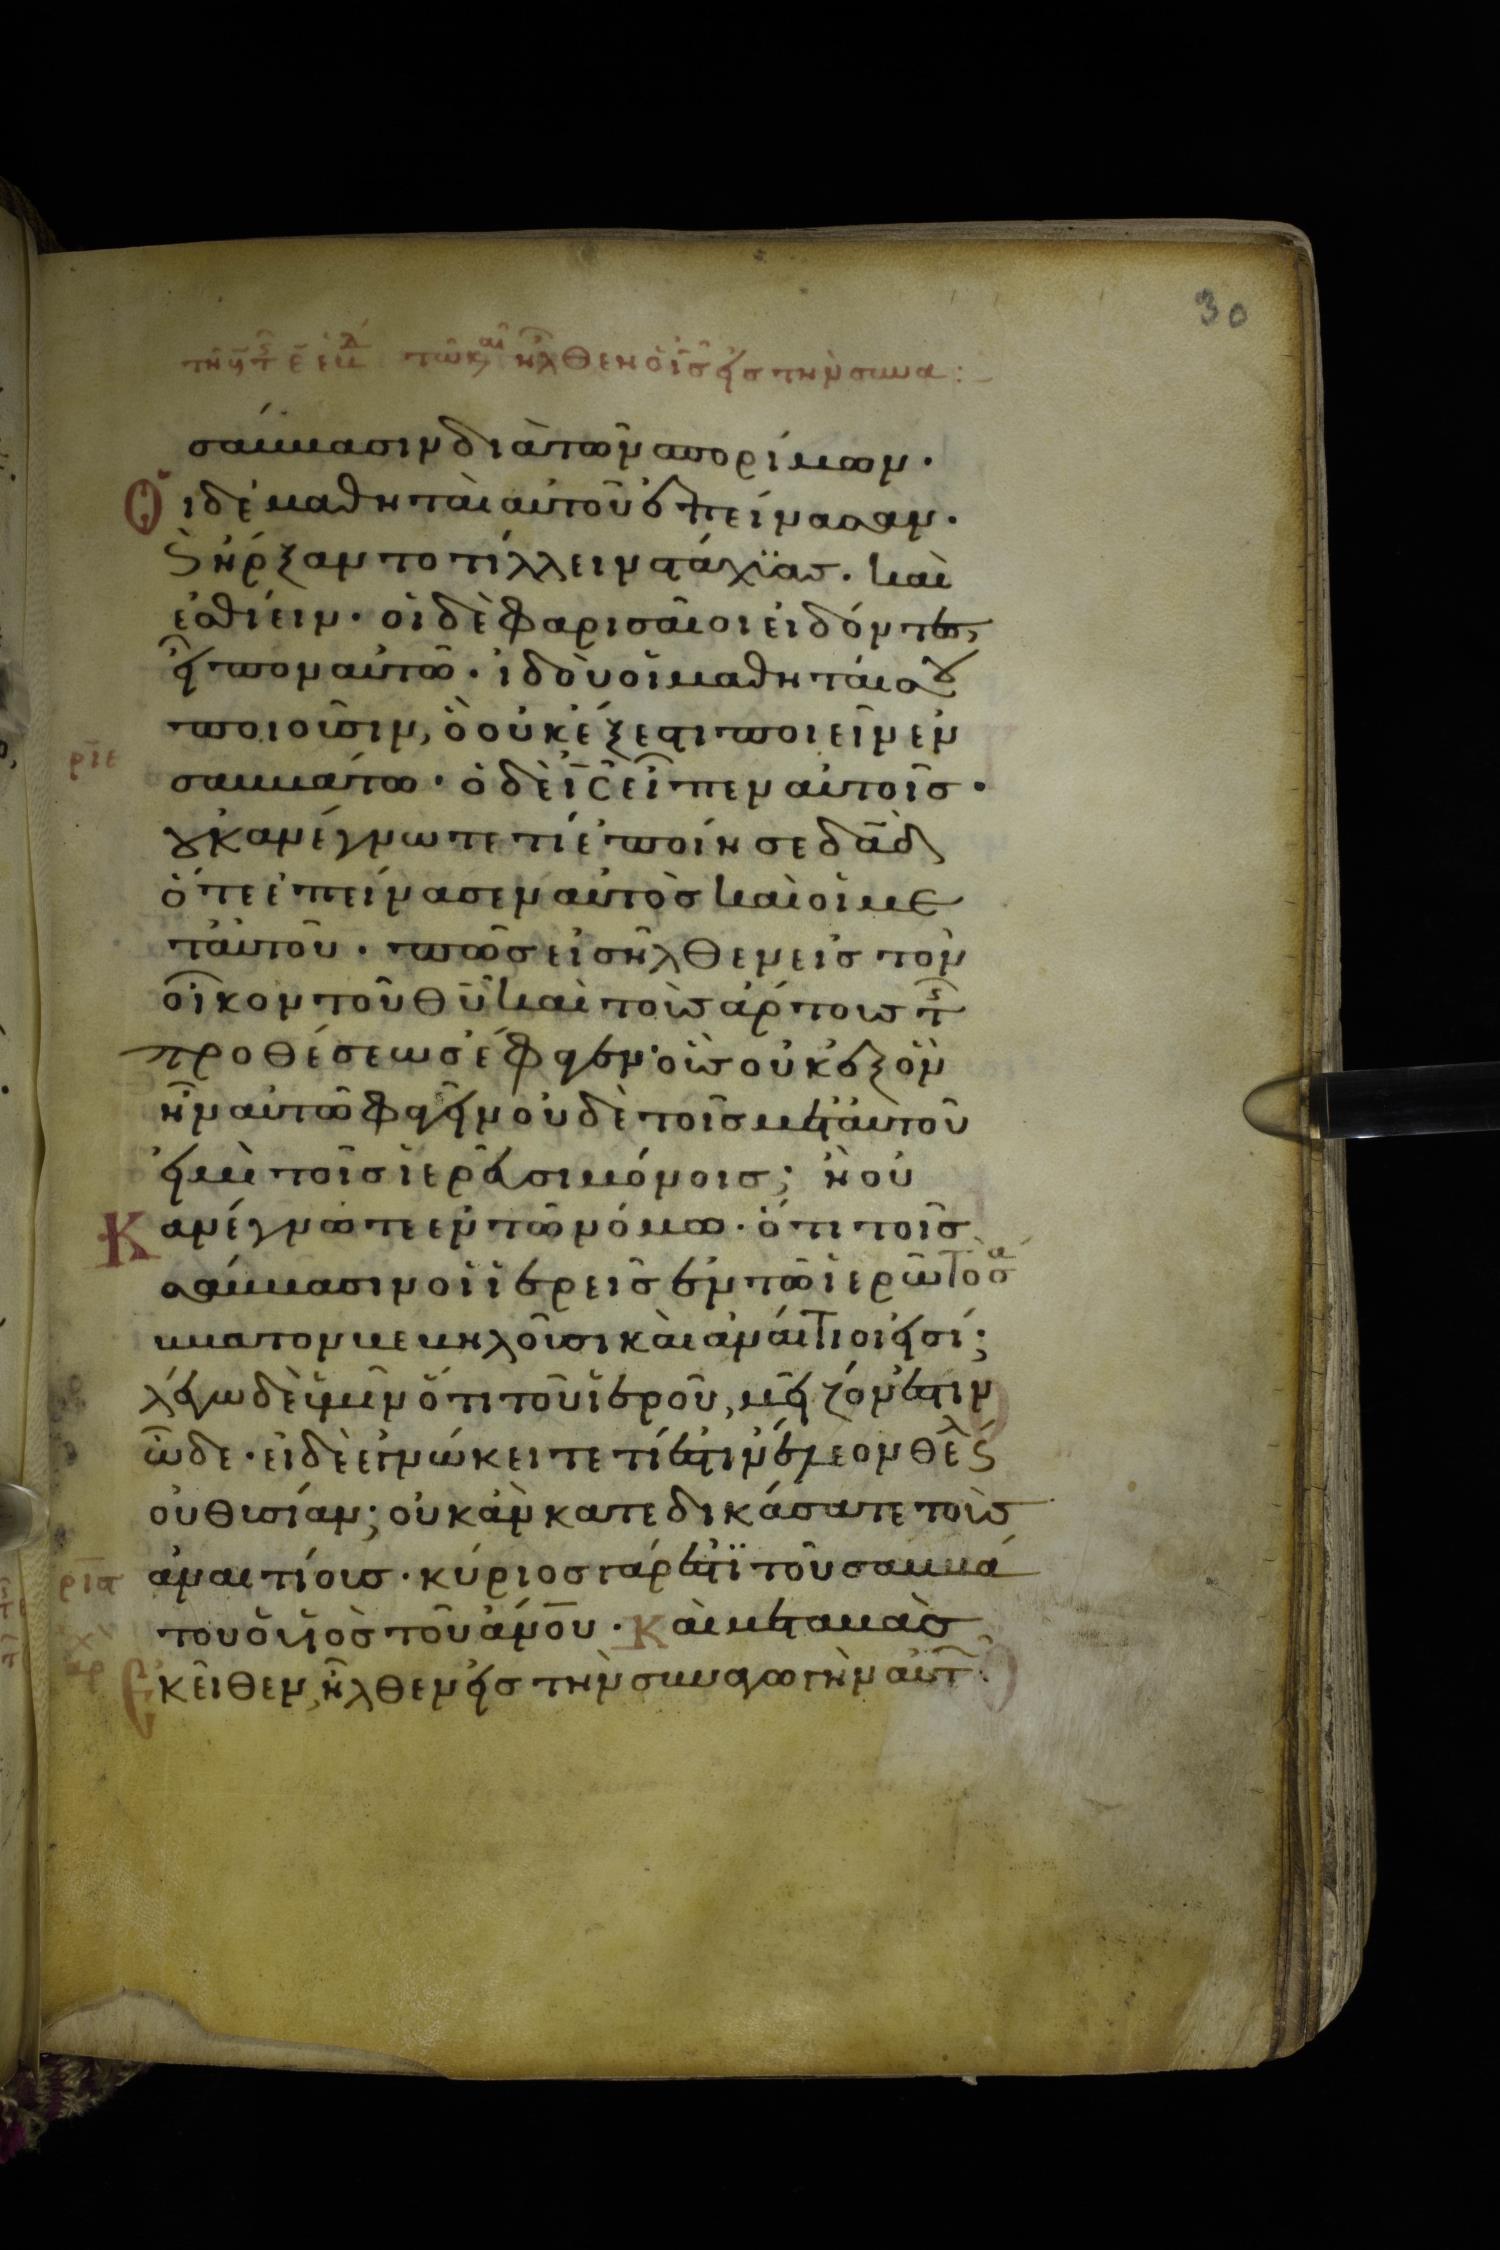 30
σάββασιν διὰ τῶν σπορίμων·
Οἱ δὲ μαθηταὶ αὐτοῦ ἐπείνασαν·
ϛ ἤρξαντο τίλλειν στάχϊας· καὶ
ἐσθίειν· οἱ δὲ φαρισαῖοι ἰδόντες,
εἶπον αὐτῶ· ἰδοὺ οἱ μαθηταί σου
ποιοῦσιν, ὃ οὐκ ἔξεστι ποιεῖν ἐν
ρ̅ι̅ε̅ σαββάτω· ὁ δὲ ι̅ς̅ εἶπεν αὐτοῖς·
οὐκ ἀνέγνωτε τί ἐποίησε δα̅δ̅
ὅτε ἐπείνασεν αὐτὸς καὶ οἱ με
τ' αὐτοῦ· πῶς εἰσῆλθεν εἰς τὸν
οἶκον τοῦ θ̅υ̅ καὶ τοὺς ἄρτους τῆς
προθέσεως ἔφαγεν· οὓς οὐκ ἐξὸν
ἦν αὐτῶ φαγεῖν οὐδὲ τοῖς μετ' αὐτοῦ
εἰ μὴ τοῖς ἱερεῦσι μόνοις; ἢ οὐ
Κ ἀνέγνωτε ἐν τῶ νόμω· ὅτι τοῖς
σάββασιν οἱ ἱερεῖς ἐν τῶ ἱερῶ τὸ σά
ββατον βεβηλοῦσι καὶ ἀναίτιοί εἰσί;
λέγω δὲ ὑμῖν ὅτι τοῦ ἱεροῦ, μεῖζόν ἐστιν
ὧδε· εἰ δὲ ἐγνώκειτε τί ἐστιν ἔλεον θέλω ϛ
οὐ θυσίαν; οὐκ ἂν κατεδικάσατε τοὺς
ρ̅ι̅ϛ̅ ἀναιτίους· κύριος γάρ ἐστϊ τοῦ σαββά
του ὁ υἱὸς τοῦ ἀν̅ο̅υ· Καὶ μεταβὰς
Ἐκεῖθεν, ἦλθεν εἰς τὴν συναγωγὴν αὐτῶν·